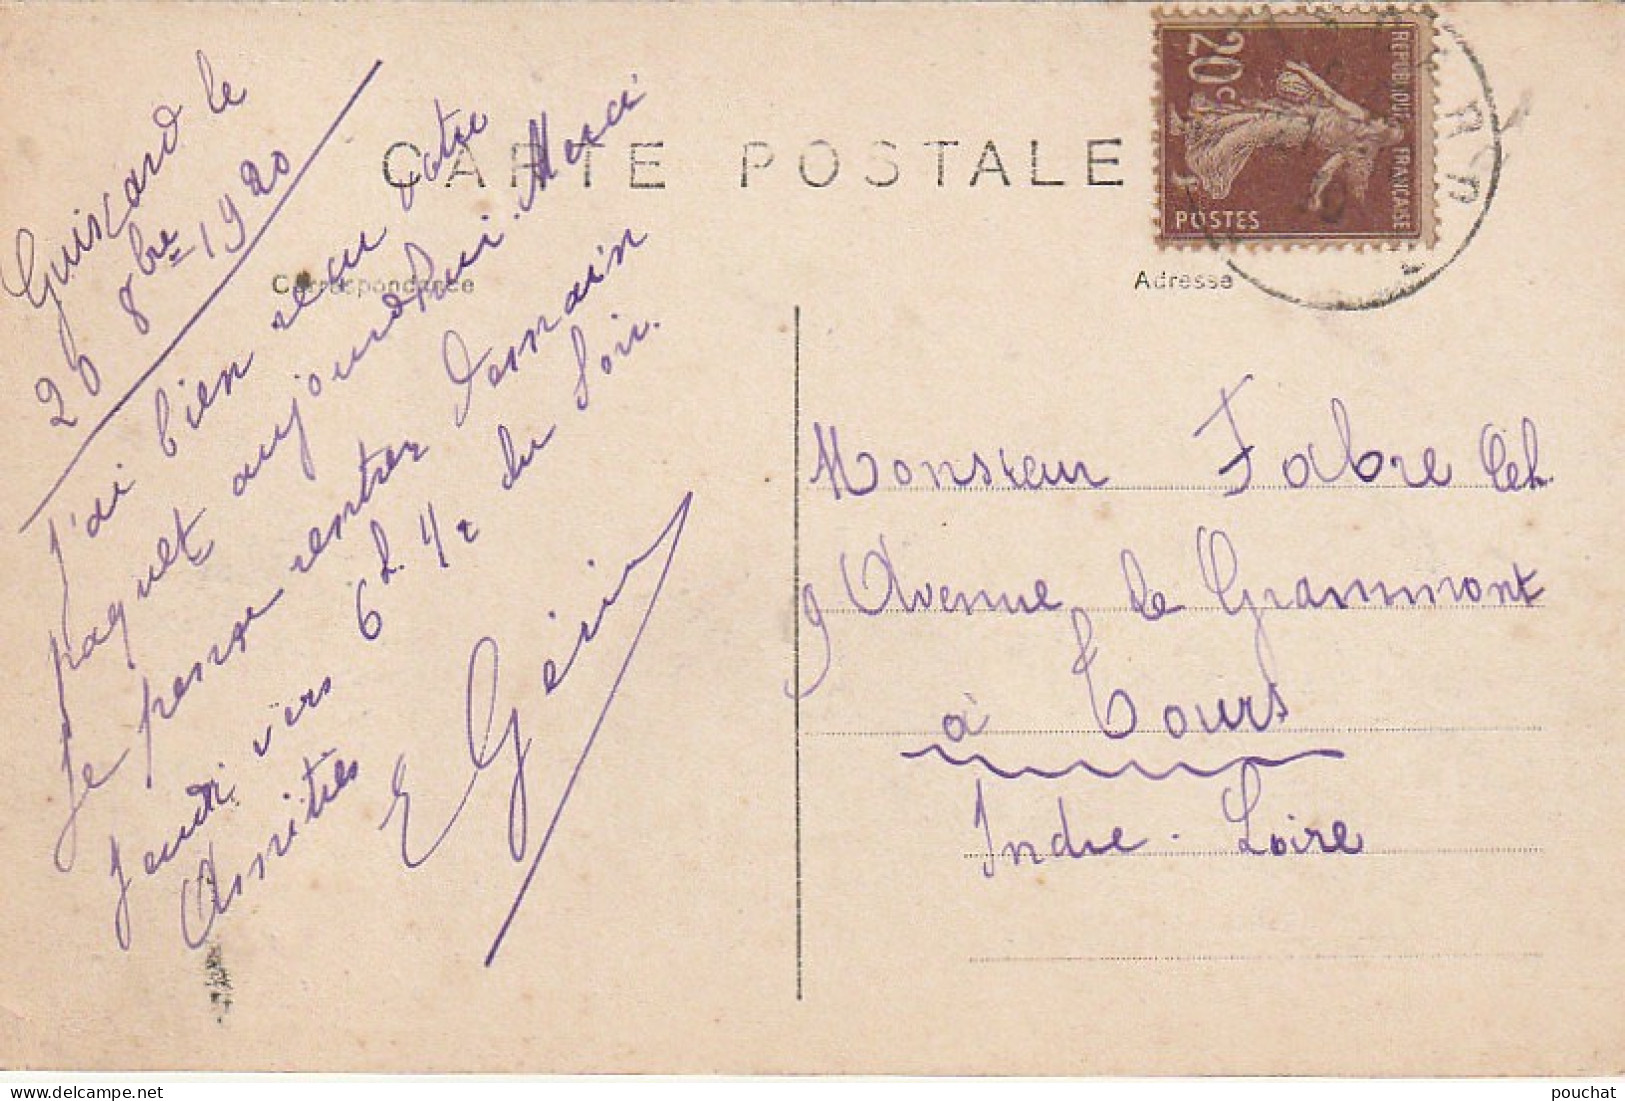 CARTE POSTALE
Correspondance
Adresse
REPUBLIQUE FRANCAISE
20c
POSTES
Guiscard le
26 8bre 1920
J'ai bien reçu votre
paquet aujourd'hui. Merci
Je pense rentrer demain
Jeudi vers 6h. 1/2 du soir.
Amitiés
E Gérin
Monsieur Fabre Ch.
9 Avenue de Grammont
à Tours
Indre-Loire
pouchat